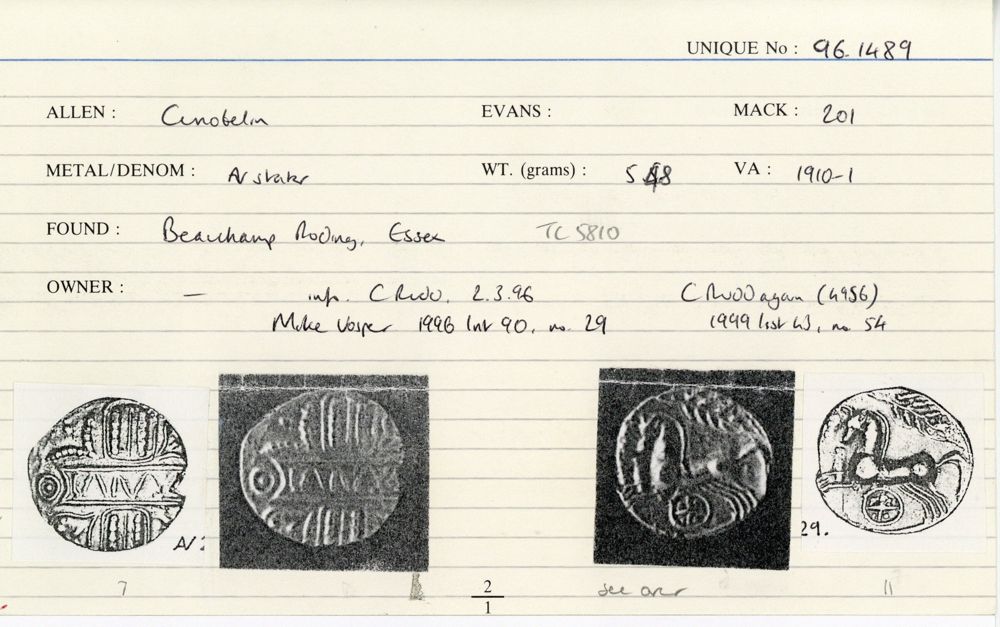 UNIQUE No : 96.1489
ALLEN : Cunobelin EVANS : MACK : 201
METAL/DENOM : AV stater WT. (grams) : 5.48 VA : 1910-1
FOUND : Beauchamp Roding, Essex TC 5810
OWNER : — info. C Rudd, 2.3.96 C Rudd again (4956)
Mike Vosper 1996 list 90, no. 29 1999 list 43, no. 54
29.
7 2/1 see over 11